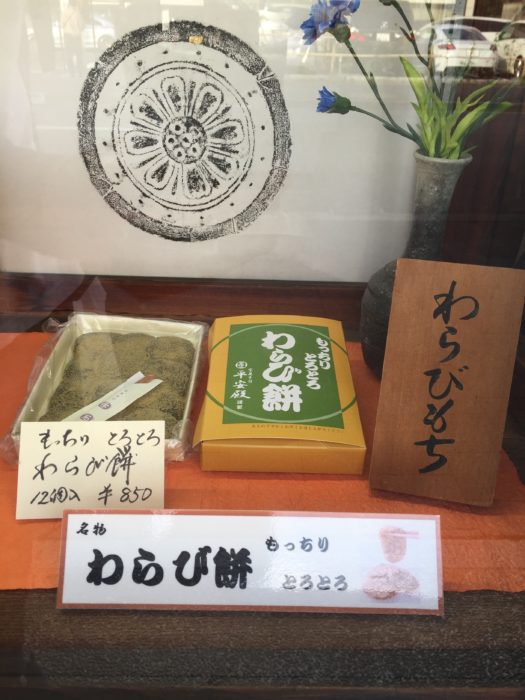 もっちり
とろとろ
わらび餅
平安殿
わらびもち
もっちり とろとろ
わらび餅
12個入 ¥850
名物
わらび餅
もっちり
とろとろ